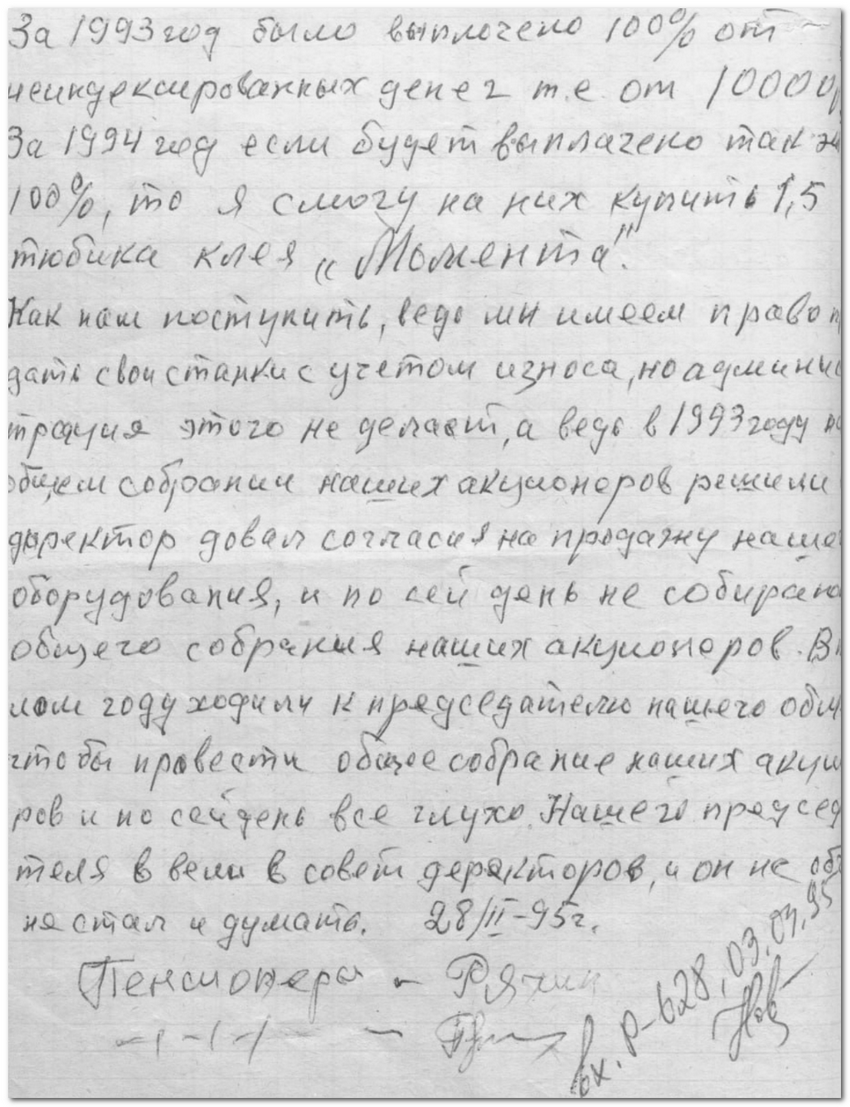 За 1993 год было выплочено 100% от
неиндексированных денег т.е. от 10000
За 1994 год если будет выплачено так
100%, то я смогу на них купить 1,5
тюбика клея „Момента".
Как нам поступить, ведь мы имеем право
дать свои станки с учетом износа, но админис
трация этого не делает, а ведь в 1993 году
общем собрании наших акционеров решили
директор довал согласия на продажу наше
оборудования, и по сей день не собирано
общего собрания наших акционеров. В
лом году ходили к председателю нашего
чтобы провести общее собрание наших акци
ров и по сей день все глухо. Нашего председ
теля в вели в совет деректоров, и он не
не стал и думать. 28/II-95г.
Пенсионеры - Ряхин
-ı-ı-ı- -
вх. Р-628, 03.03.95